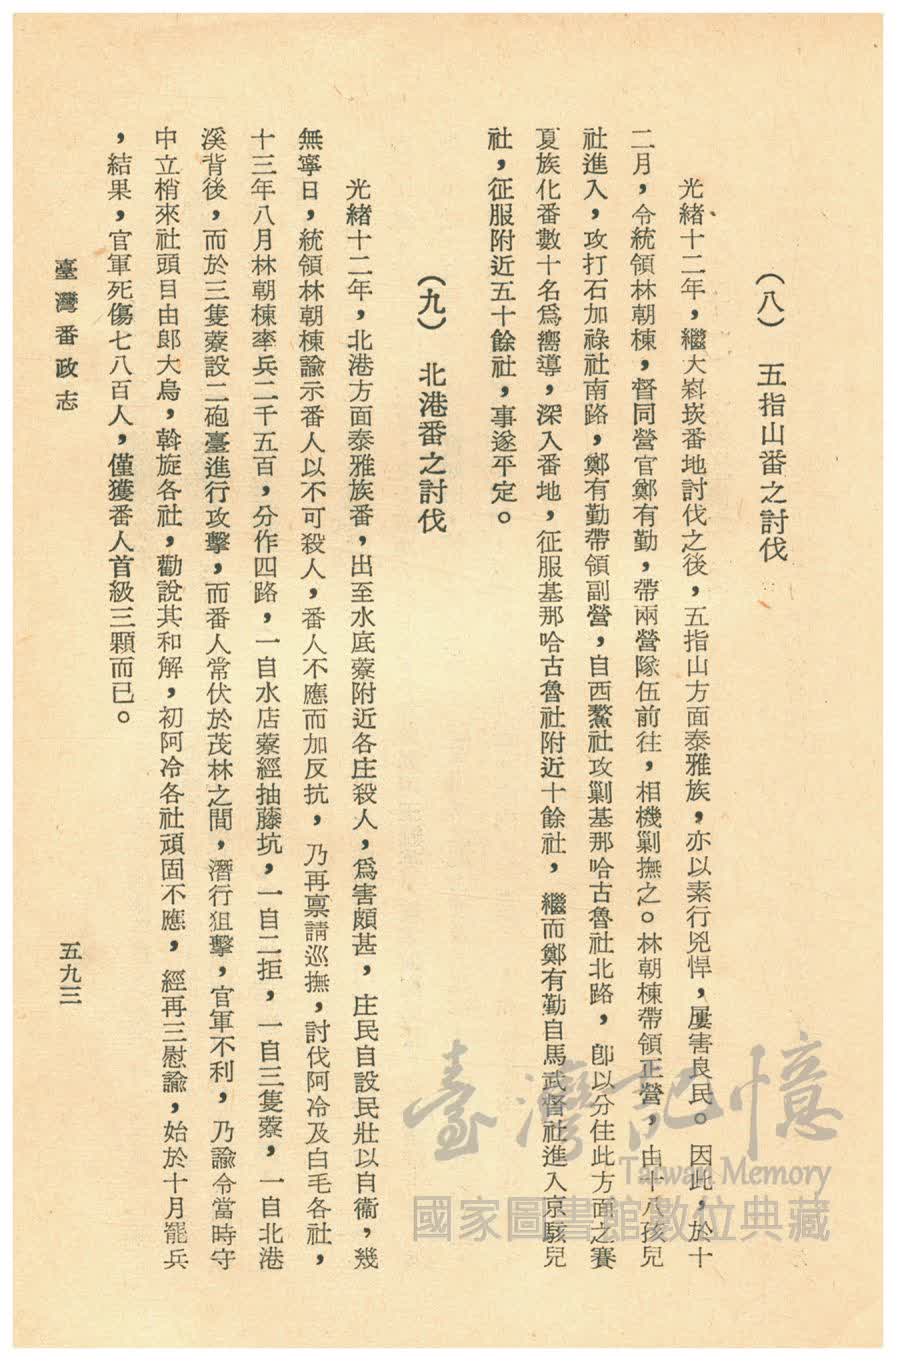 (八) 五指山番之討伐
光緒十二年，繼大嵙崁番地討伐之後，五指山方面泰雅族，亦以素行兇悍，屢害良民。因此，於十
二月，令統領林朝棟，督同營官鄭有勤，帶兩營隊伍前往，相機剿撫之。林朝棟帶領正營，由十八孩兒
社進入，攻打石加祿社南路，鄭有勤帶領副營，自西鰲社攻剿基那哈古魯社北路，卽以分住此方面之賽
夏族化番數十名爲嚮導，深入番地，征服基那哈古魯社附近十餘社，繼而鄭有勤自馬武督社進入京駭兒
社，征服附近五十餘社，事遂平定。
(九) 北港番之討伐
光緒十二年，北港方面泰雅族番，出至水底藔附近各庄殺人，爲害頗甚，庄民自設民壯以自衞，幾
無寧日，統領林朝棟諭示番人以不可殺人，番人不應而加反抗，乃再禀請巡撫，討伐阿冷及白毛各社，
十三年八月林朝棟率兵二千五百，分作四路，一自水店藔經抽藤坑，一自二拒，一自三隻藔，一自北港
溪背後，而於三隻藔設二砲臺進行攻擊，而番人常伏於茂林之間，潛行狙擊，官軍不利，乃諭令當時守
中立梢來社頭目由郞大烏，斡旋各社，勸說其和解，初阿冷各社頑固不應，經再三慰諭，始於十月罷兵
，結果，官軍死傷七八百人，僅獲番人首級三顆而已。
臺灣番政志
五九三
臺灣記憶
Taiwan Memory
國家圖書館數位典藏